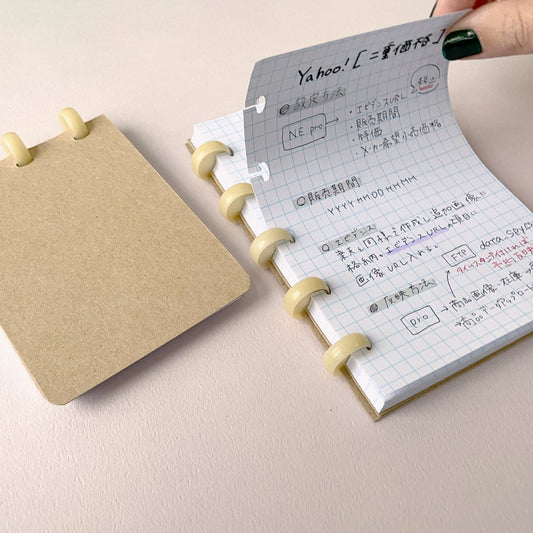 Yahoo! [二重価格]
◎設定方法
NE pro
・エビデンスURL
・販売期間
・特価
・メーカー希望小売価格
○販売期間
YYYY MM DD HH MM
○エビデンス
楽天と同様に作成し追加画像に
格納。エビデンスURLの項目に
画像URL入れる。
FTP
data_spy
タイムスタンプ付ければ
◎反映方法
pro → 商品画像・在庫
→商品データアップロード